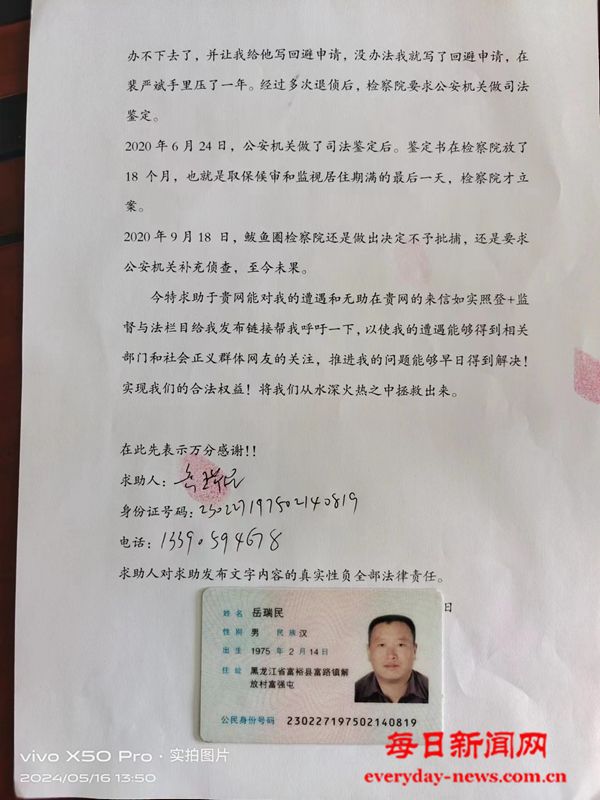 办不下去了，并让我给他写回避申请，没办法我就写了回避申请，在
裴严斌手里压了一年。经过多次退侦后，检察院要求公安机关做司法
鉴定。
2020年6月24日，公安机关做了司法鉴定后。鉴定书在检察院放了
18个月，也就是取保候审和监视居住期满的最后一天，检察院才立
案。
2020年9月18日，鲅鱼圈检察院还是做出决定不予批捕，还是要求
公安机关补充侦查，至今未果。
今特求助于贵网能对我的遭遇和无助在贵网的来信如实照登+监
督与法栏目给我发布链接帮我呼吁一下，以使我的遭遇能够得到相关
部门和社会正义群体网友的关注，推进我的问题能够早日得到解决！
实现我们的合法权益！将我们从水深火热之中拯救出来。
在此先表示万分感谢!!
求助人：岳瑞民
身份证号码：230227197502140819
电话：13390594678
求助人对求助发布文字内容的真实性负全部法律责任。
日
姓名 岳瑞民
性别 男 民族 汉
出生 1975年2月14日
住址 黑龙江省富裕县富路镇解
放村富强屯
公民身份号码 230227197502140819
vivo X50 Pro · 实拍图片
2024/05/16 13:50
每日新闻网
everyday-news.com.cn